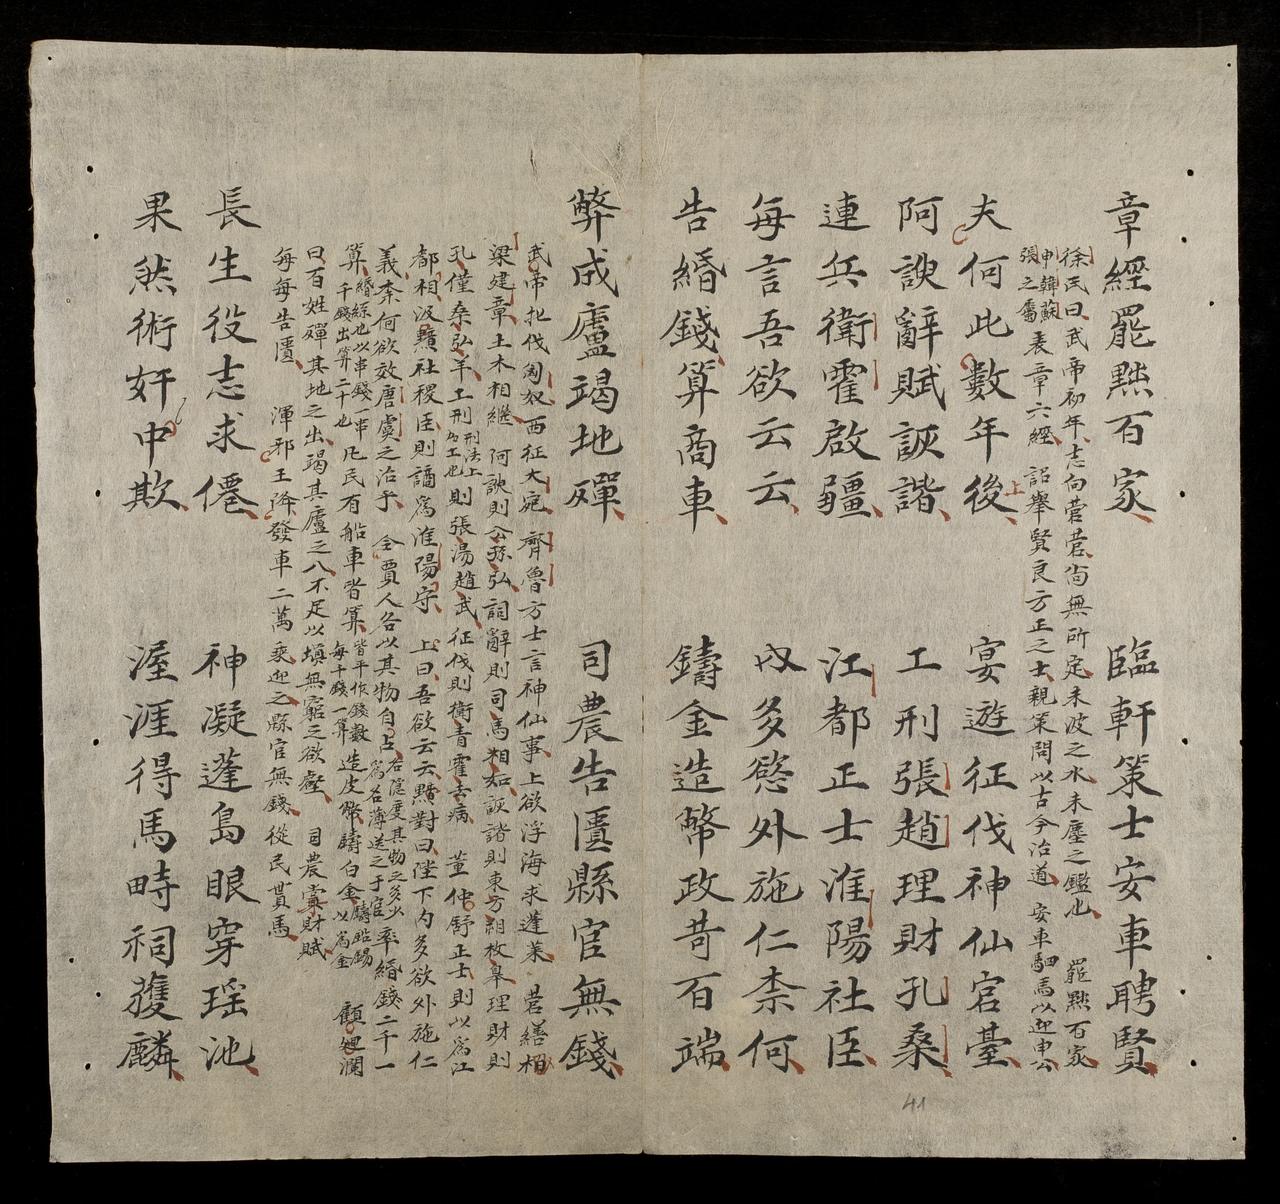 章經罷黜百家　臨軒策士安車聘賢
徐氏曰武帝初年志向菅菅尚無所定未波之水未塵之鑑也　罷黜百家
申韓蘇張之屬表章六經　詔舉賢良方正之士親策問以古今治道　安車駟馬以迎申公
夫何此數年後　宴遊征伐神仙宮臺
阿諛辭賦詼諧　工刑張趙理財孔桑
連兵衛霍啟疆　江都正士淮陽社臣
每言吾欲云云　内多慾外施仁柰何
告緡錢算商車　鑄金造幣政苛百端
弊成廬竭地殫　司農告匱縣官無錢
武帝北伐匈奴西征大宛　齊魯方士言神仙事上欲浮海求蓬萊　营繕栢
梁建章土木相繼　阿諛則公孫弘詞辭則司馬相如詼諧則東方朔枚皋理財則
孔僅桑弘羊工刑刑法上為工也則張湯趙武征伐則衛青霍去病　董仲舒正士則以爲江
都相汲黯社稷臣則謫爲淮陽守　上曰吾欲云云黯對曰陛下内多欲外施仁
義柰何欲效唐虞之治乎　令賈人各以其物自占各隱度其物之多少爲名簿送之于官率緡錢二千一
算緡絲也以串錢一串千錢出算二十也凡民有船車皆算皆平作錢數每千錢一算造皮幣鑄白金鑄鉛錫以為金　顧廻瀾
曰百姓殫其地之出竭其廬之入不足以填無窮之欲壑　司農賞財賦
每每告匱　渾邪王降發車二萬乘迎之縣官無錢從民貰馬
長生役志求僊　神凝蓬島眼穿瑶池
果然術奸中欺　渥涯得馬畤祠獲麟
41